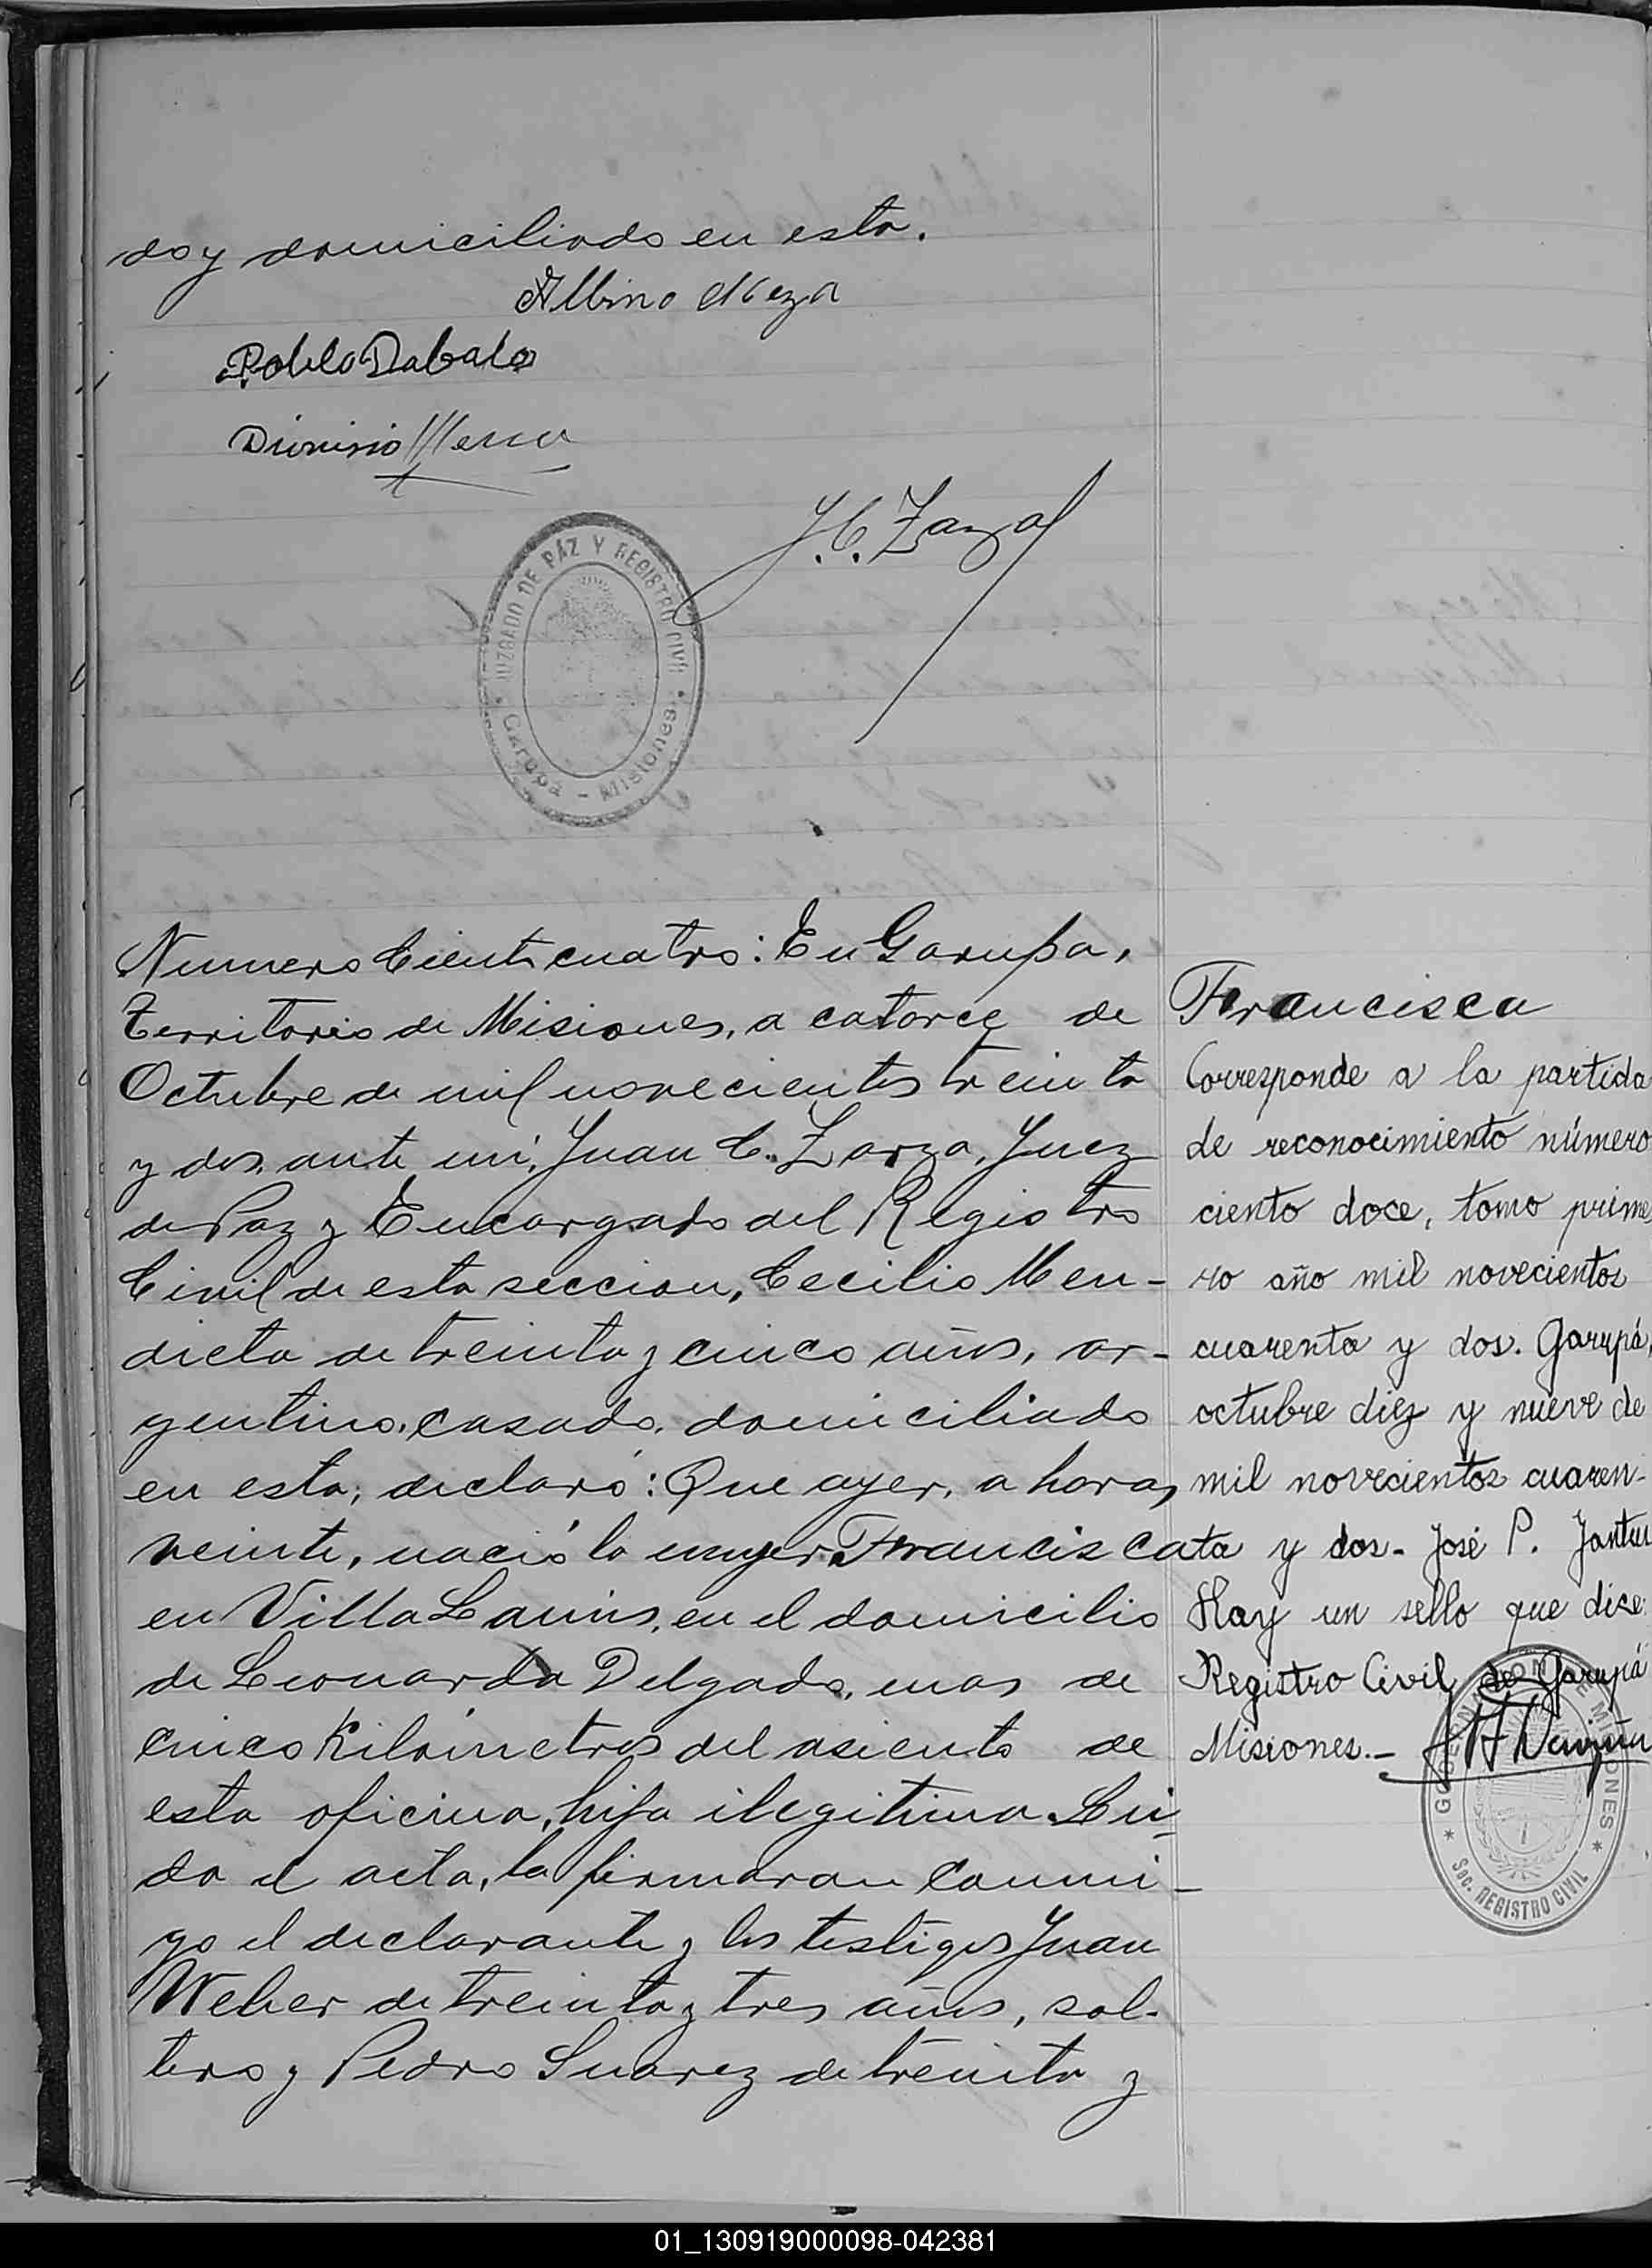 do y domiciliado en esta.
Albino Meza
Pablo Dabalo
Dionisio
J. C. Zarza
JUZGADO DE PÁZ Y REGISTRO CIVIL
Garupá - Misiones
Numero Ciento cuatro: En Garupa,
Territorio de Misiones, a catorce de
Octubre de mil novecientos treinta
y dos, ante mi, Juan C. Zarza, Juez
de Paz y Encargado del Registro
Civil de esta seccion, Cecilio Men-
dieta de treinta y cinco años, ar-
gentino, casado, domiciliado
en esta, declaró: Que ayer, a horas
veinte, nació la mujer Francisca
en Villa Lanús, en el domicilio
de Leonarda Delgado, mas de
cinco Kilómetros del asiento de
esta oficina, hija ilegitima. Lei-
da el acta, la firmaran conmi-
go el declarante y los testigos Juan
Weber de treinta y tres años, sol-
tero y Pedro Suarez de treinta y
Francisca
Corresponde a la partida
de reconocimiento número
ciento doce, tomo prime
ro año mil novecientos
cuarenta y dos. Garupá,
octubre diez y nueve de
mil novecientos cuaren-
ta y dos.- José P.
Hay un sello que dice:
Registro Civil de Garupá
Misiones.-
GOBERNACION DE MISIONES
Sec. REGISTRO CIVIL
01_130919000098-042381